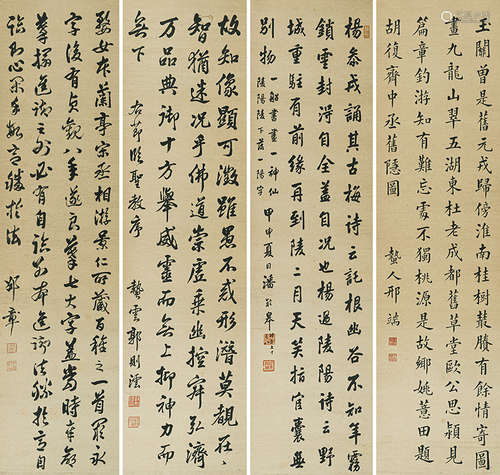 玉關曾是舊元戎旌旆淮南樹桂叢勝有餘情寄圖
畫九龍山翠五湖東杜老成都舊草堂歐公思潁見
篇章釣游知有難忘處不獨桃源是故鄉姚薏田題
胡復齋中丞舊隱圖 蟄人邢端
楊恭戎誦其古梅詩云託根不知年露
鎖雲封得自全蓋自況也楊過陵陽詩云野
城重駐有前緣再到陵二月天笑指宦囊無
別物 一船書畫一神仙
陵陽陵下落一陽字
甲申夏日潘齡皋
故知像顯可徵雖愚不惑形潛莫覩在
智猶迷況乎佛道崇虛乘幽控寂弘濟
萬品典御十方舉威靈而無上抑神力而
無下 右節臨聖教序 蟄雲郭則澐
婺女本蘭亭宋丞相游景仁所藏百種之一首 永
字後有貞觀八年遂良摹七大字蓋當時奉敕
摹搨進御之外必有詒家本進御法勝於意自
詒則心閑手敏意勝於法 邵章